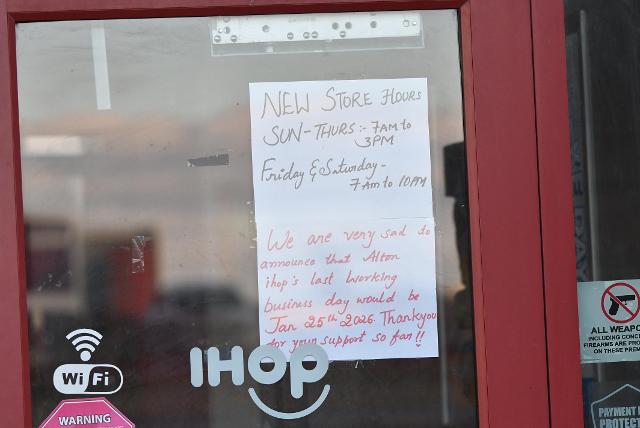 NEW STORE HOURS
SUN-THURS :- 7AM to
3PM
Friday & Saturday -
7AM to 10PM
We are very sad to
announce that Alton
ihop's last working
business day would be
Jan 25th 2026. Thankyou
for your support so far!!
IHOP
WiFi
WARNING
ALL WEAPO
INCLUDING CONCE
FIREARMS ARE PRO
ON THESE PREM
PAYMENT
PROTEC